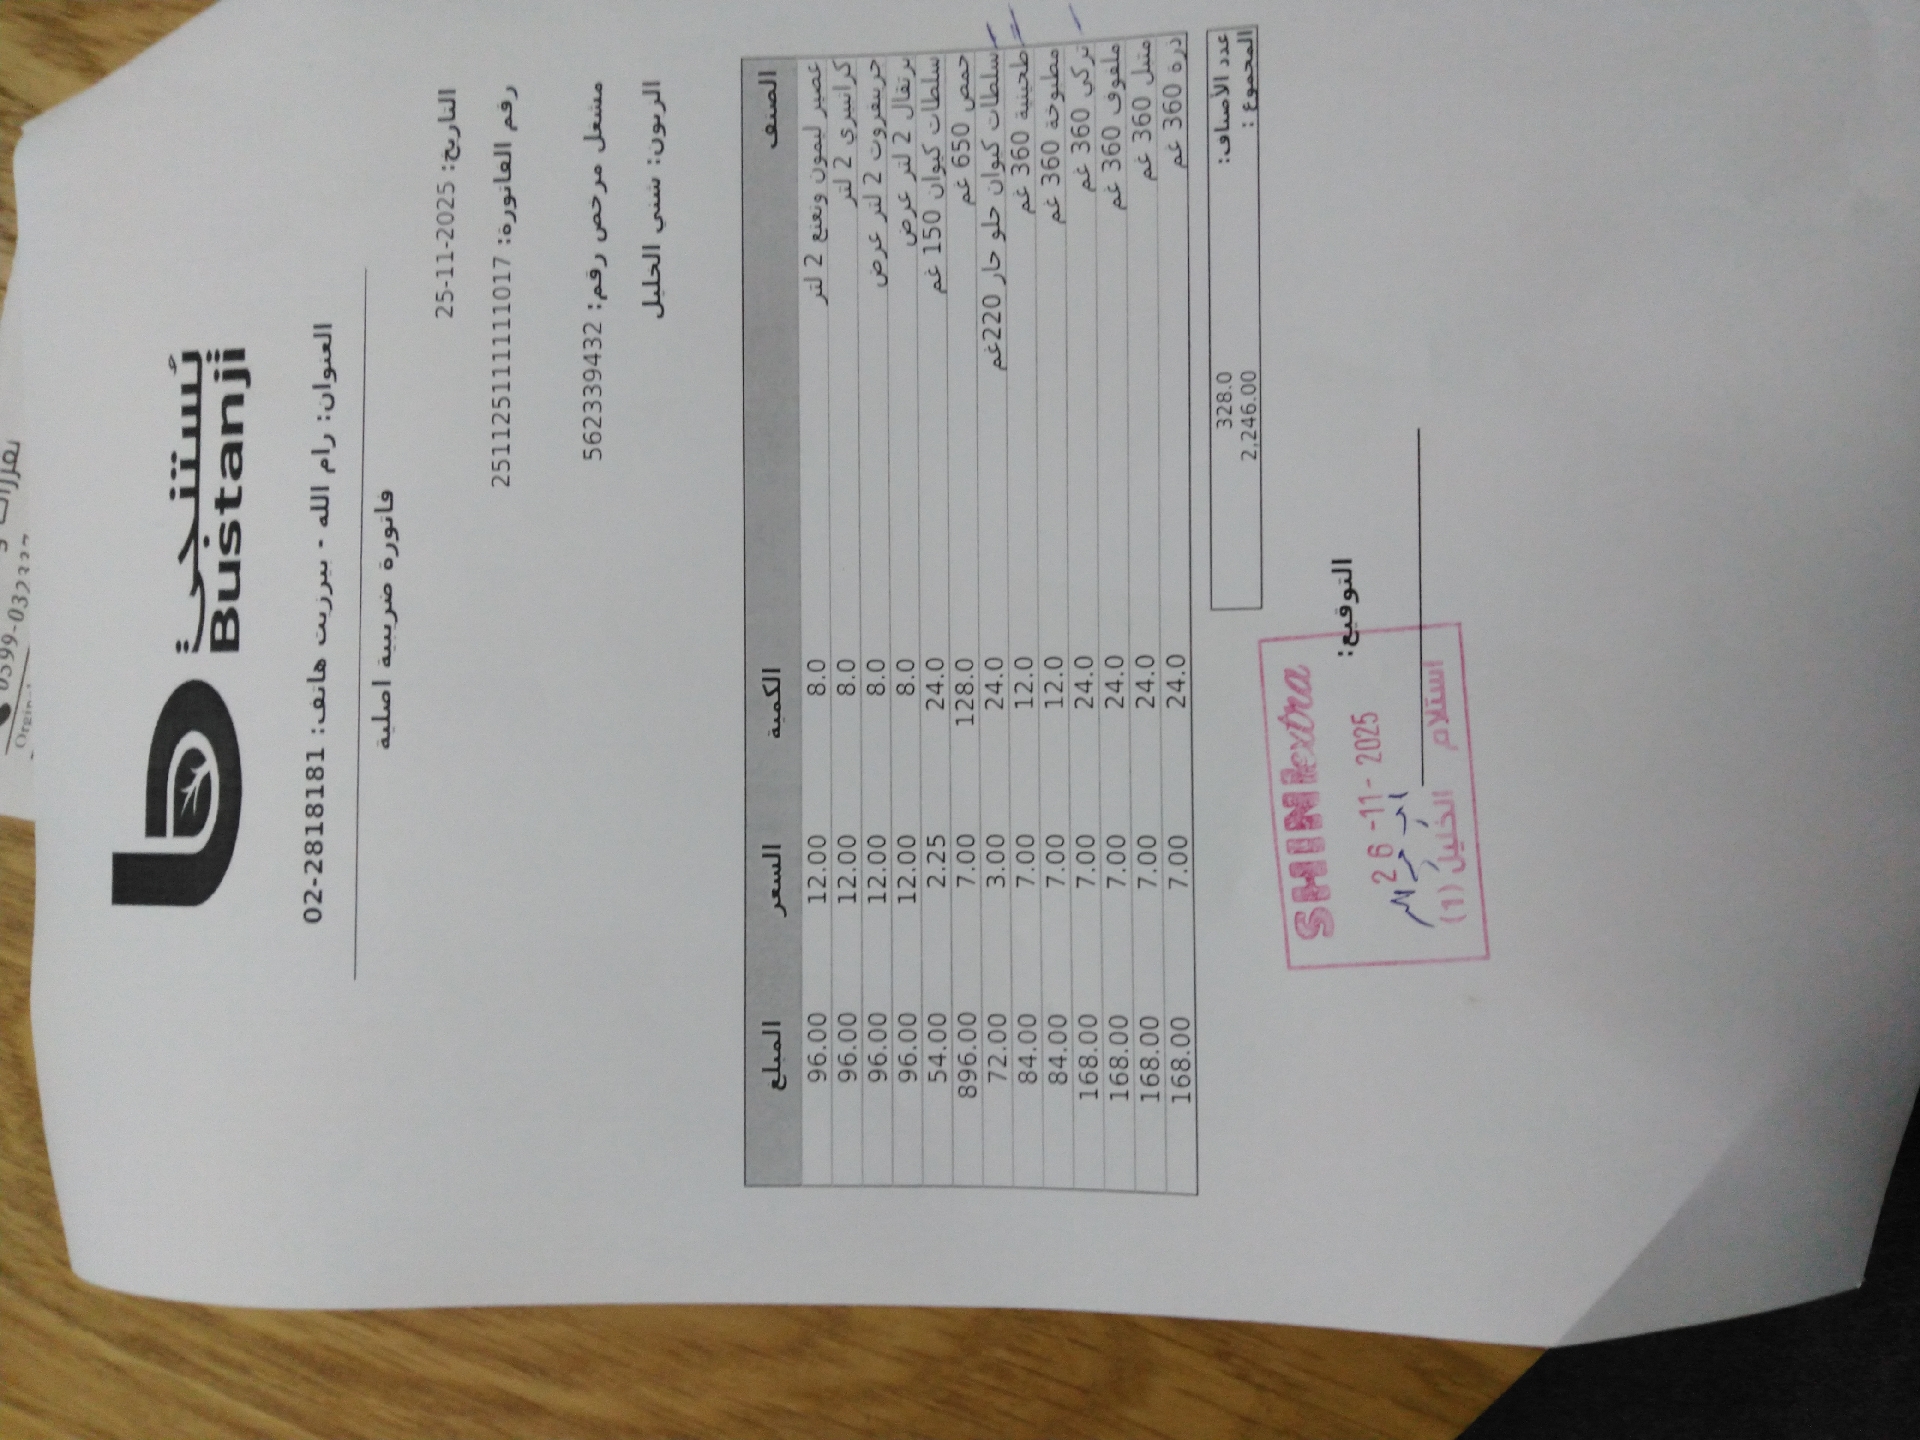 بُستنجي
Bustanji
العنوان: رام الله - بيرزيت هاتف: 02-2818181
فاتورة ضريبية اصلية
التاريخ: 25-11-2025
رقم الفاتورة: 251125111111017
مشتغل مرخص رقم: 562339432
الزبون: شني الخليل
الصنف الكمية السعر المبلغ
عصير ليمون ونعنع 2 لتر 8.0 12.00 96.00
كرانبيري 2 لتر 8.0 12.00 96.00
جريبفروت 2 لتر عرض 8.0 12.00 96.00
برتقال 2 لتر عرض 8.0 12.00 96.00
سلطات كيوان 150 غم 24.0 2.25 54.00
حمص 650 غم 128.0 7.00 896.00
سلطات كيوان حلو حار 220غم 24.0 3.00 72.00
طحينية 360 غم 12.0 7.00 84.00
مطبوخة 360 غم 12.0 7.00 84.00
تركي 360 غم 24.0 7.00 168.00
ملفوف 360 غم 24.0 7.00 168.00
متبل 360 غم 24.0 7.00 168.00
ذرة 360 غم 24.0 7.00 168.00
عدد الأصناف: 328.0
المجموع : 2,246.00
التوقيع:
SHINI extra
26-11-2025
استلام الخليل (1)